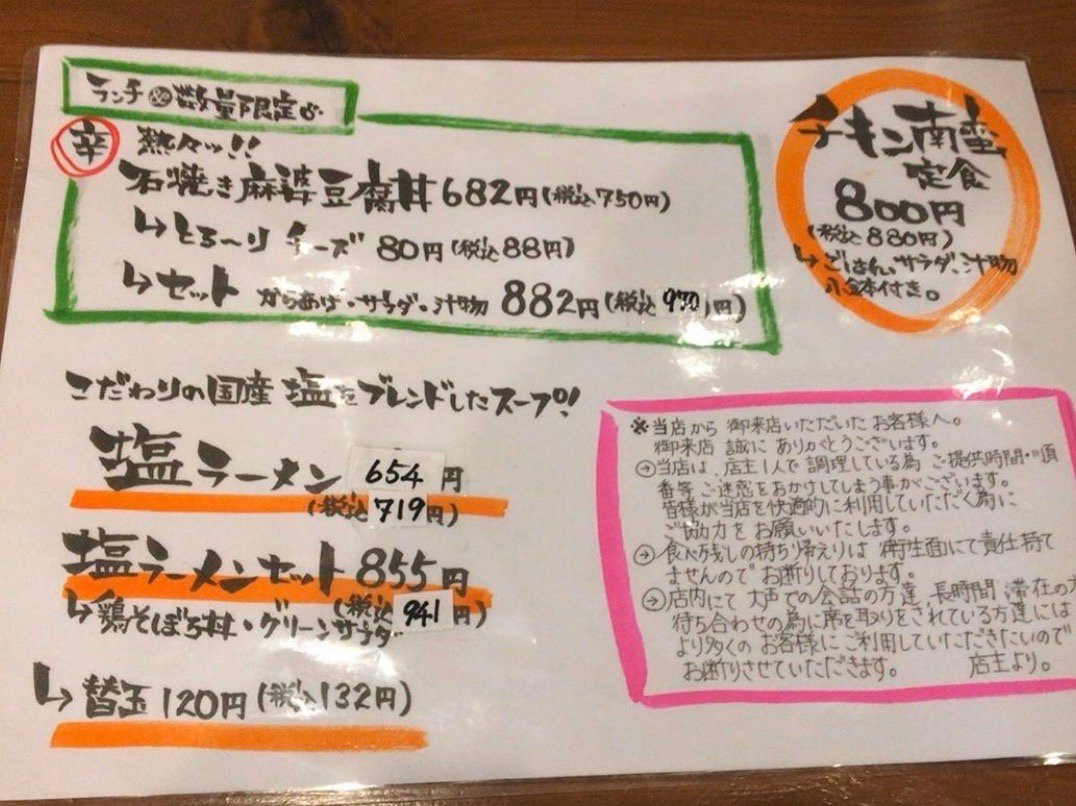 ランチ&数量限定
辛 熱々ッ!!
石焼き麻婆豆腐丼 682円(税込750円)
↳とろ〜りチーズ 80円(税込88円)
↳セット からあげ・サラダ・汁物 882円(税込970円)
チキン南蛮
定食
800円
(税込880円)
↳ごはん・サラダ・汁物
小鉢付き。
こだわりの国産塩をブレンドしたスープ!
塩ラーメン 654円
(税込719円)
塩ラーメンセット 855円
(税込941円)
↳鶏そぼろ丼・グリーンサラダ
↳替玉120円(税込132円)
※当店から御来店いただいたお客様へ。
御来店誠にありがとうございます。
→当店は、店主1人で調理している為ご提供時間・順
番等ご迷惑をおかけしてしまう事がございます。
皆様が当店を快適的に利用していただく為に
ご協力をお願いいたします。
→食べ残しの持ち帰りは衛生面にて責任持て
ませんのでお断りしております。
→店内にて大声での会話の方達長時間滞在の方
待ち合わせの為に席を取りをされている方達には
より多くのお客様にご利用していただきたいので
お断りさせていただきます。 店主より。